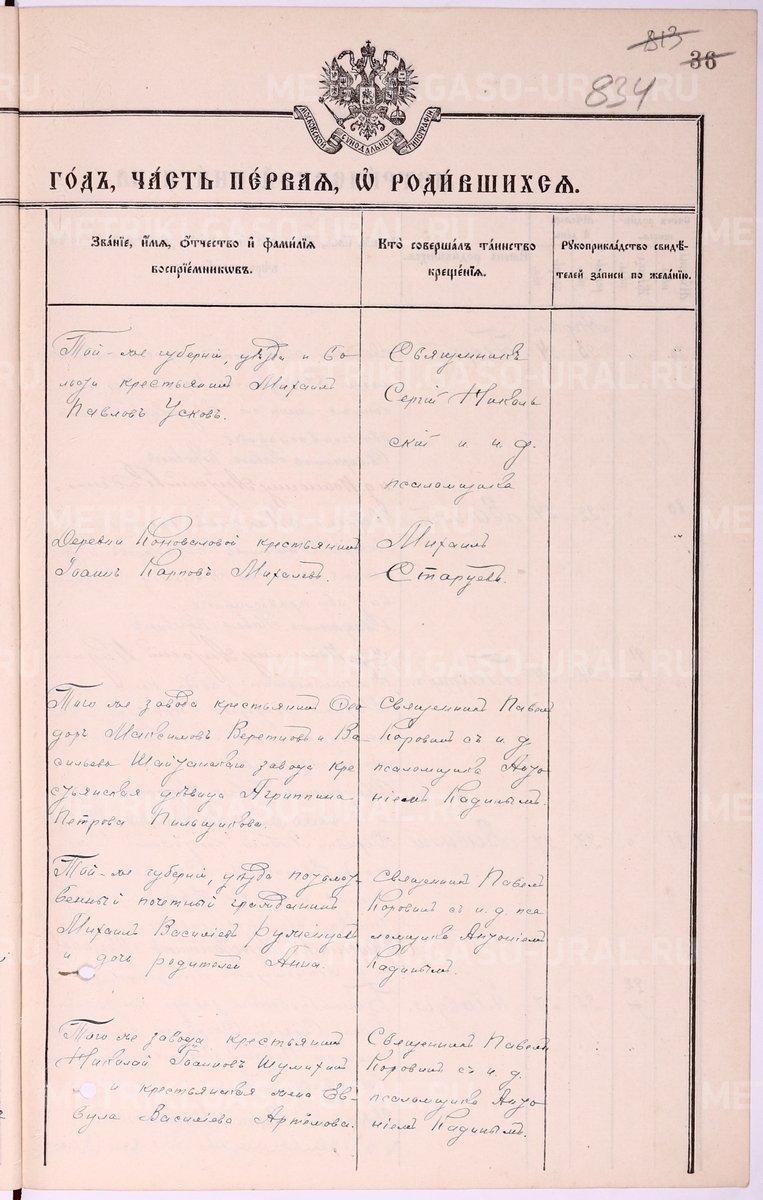 813
36
834
МОСКОВСКОЙ СѴНОДАЛЬНОЙ ТИПОГРАФІИ
ГО́ДЪ, ЧА́СТЬ ПЕ́РВАЯ, Ѡ РОДИ́ВШИХСЯ.
Зва́нїе, и́мя, ѻ́тчество и҆ фами́лїя
воспрїе́мникѡвъ.
Кто̀ соверша́лъ та́инство
креще́нїя.
Рꙋкоприкла́дство свидѣ́-
телей за́писи по жела́нїю.
Той-же губерніи, уѣзда и во-
лости крестьянинъ Михаилъ
Павловъ Усковъ.
Священникъ
Сергій Николь
скій и и. д.
псаломщика
Деревни Коноваловой крестьянинъ
Іоаннъ Карповъ Михалевъ.
Михаилъ
Старцевъ.
Того же завода крестьянинъ Ѳео
доръ Максимовъ Веретновъ и Ва
сильево Шайтанскаго завода кре
стьянская дѣвица Агриппина
Петрова Пильщикова.
Священникъ Павелъ
Коровинъ съ и. д.
псаломщика Анто
ніемъ Кадинымъ.
Той-же губерніи, уѣзда потомст-
венный почетный гражданинъ
Михаилъ Василіевъ Румянцевъ
и дочь родителей Анна.
Священникъ Павелъ
Коровинъ съ и. д. пса
ломщика Антоніемъ
Кадинымъ.
Того же завода крестьянинъ
Николай Іоанновъ Шумихин
и крестьянская жена Ев-
вула Василіева Артёмова.
Священникъ Павелъ
Коровинъ съ и. д.
псаломщика Анто
ніемъ Кадинымъ.
METRIKI.GASO-URAL.RU